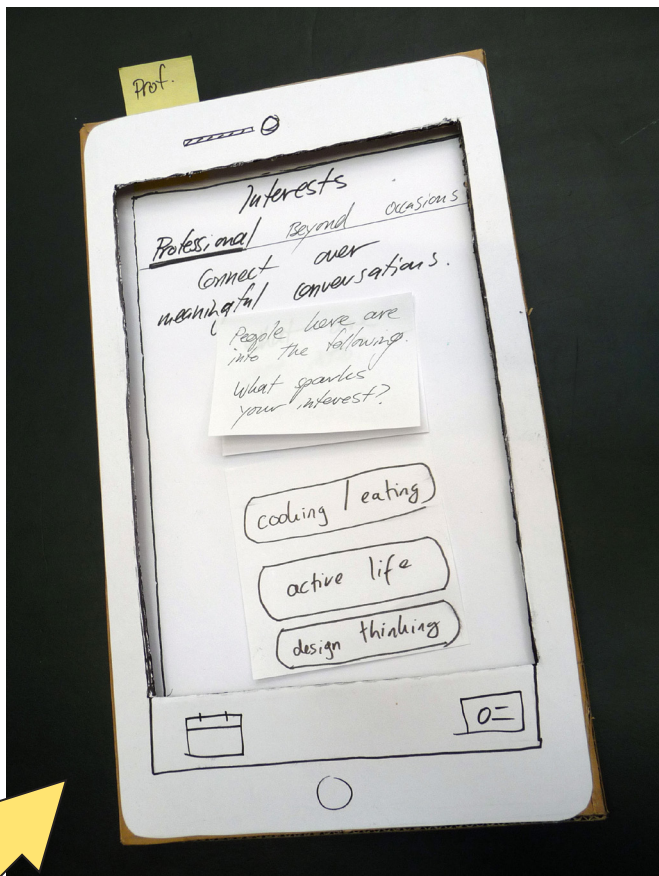 Prof.
Interests
Professional Beyond Occasions
Connect over
meaningful conversations.
People here are
into the following.
What sparks
your interest?
cooking / eating
active life
design thinking